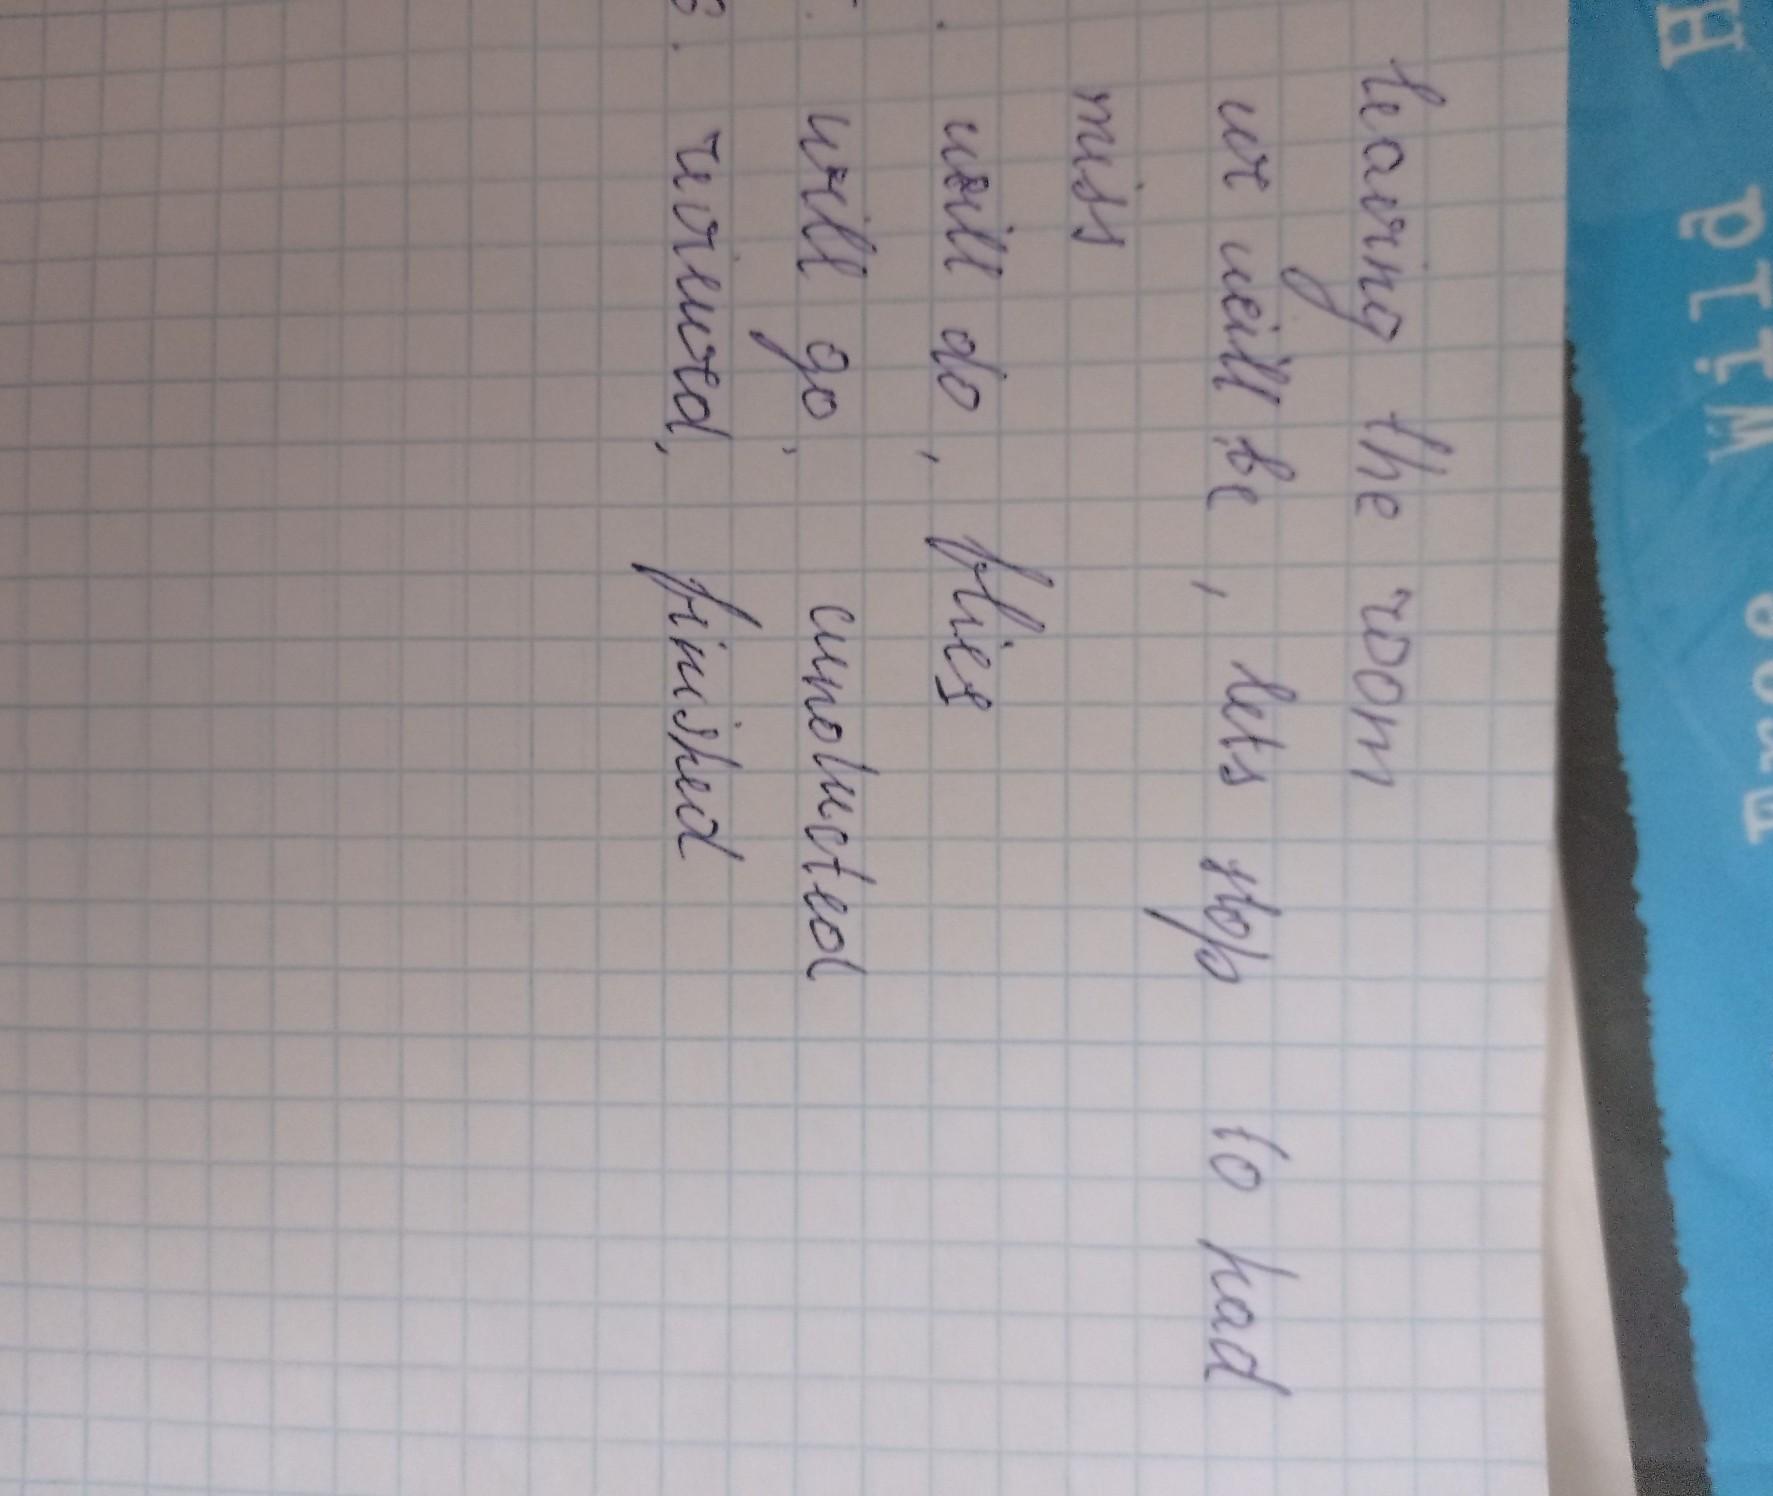 H d Wild
leaving the room
we will be, lets stop to had
miss
. will do, flies
will go, cunoducted
8. reviewed, finished